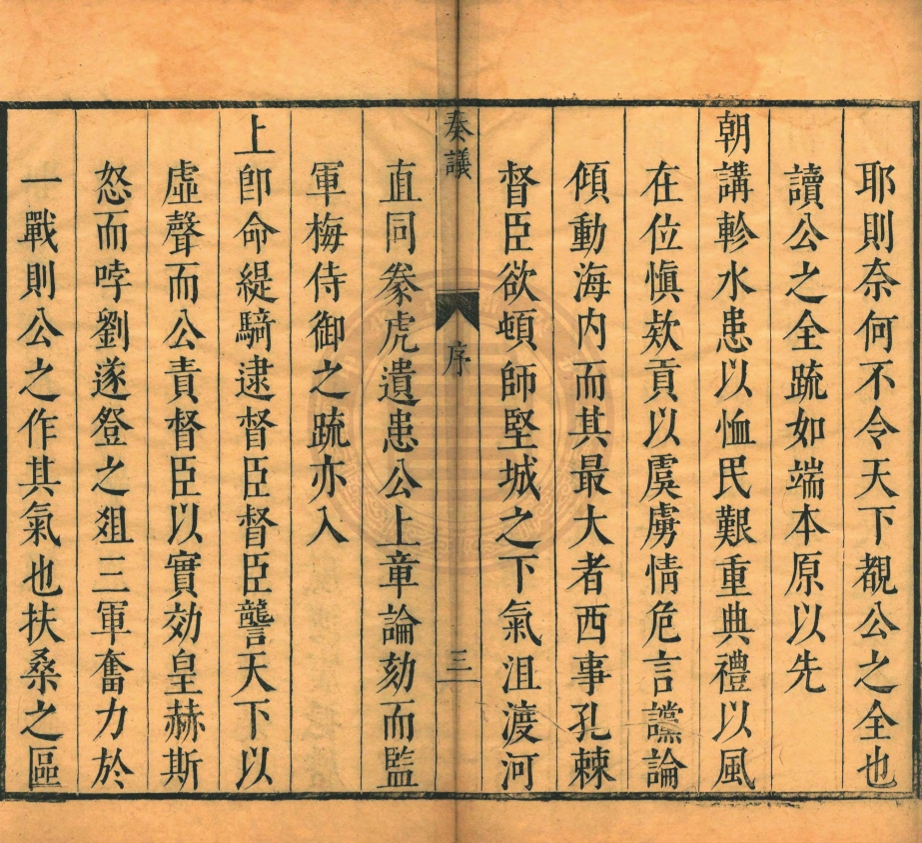 耶則奈何不令天下覩公之全也
讀公之全疏如端本原以先
朝講軫水患以恤民艱重典禮以風
在位愼欵貢以虞虜情危言讜論
傾動海内而其最大者西事孔棘
督臣欲頓師堅城之下氣沮渡河
奏議
序
三
直同豢虎遺患公上章論劾而監
軍梅侍御之疏亦入
上卽命緹騎逮督臣督臣讋天下以
虛聲而公責督臣以實効皇赫斯
怒而哱劉遂登之爼三軍奮力於
一戰則公之作其氣也扶桑之區